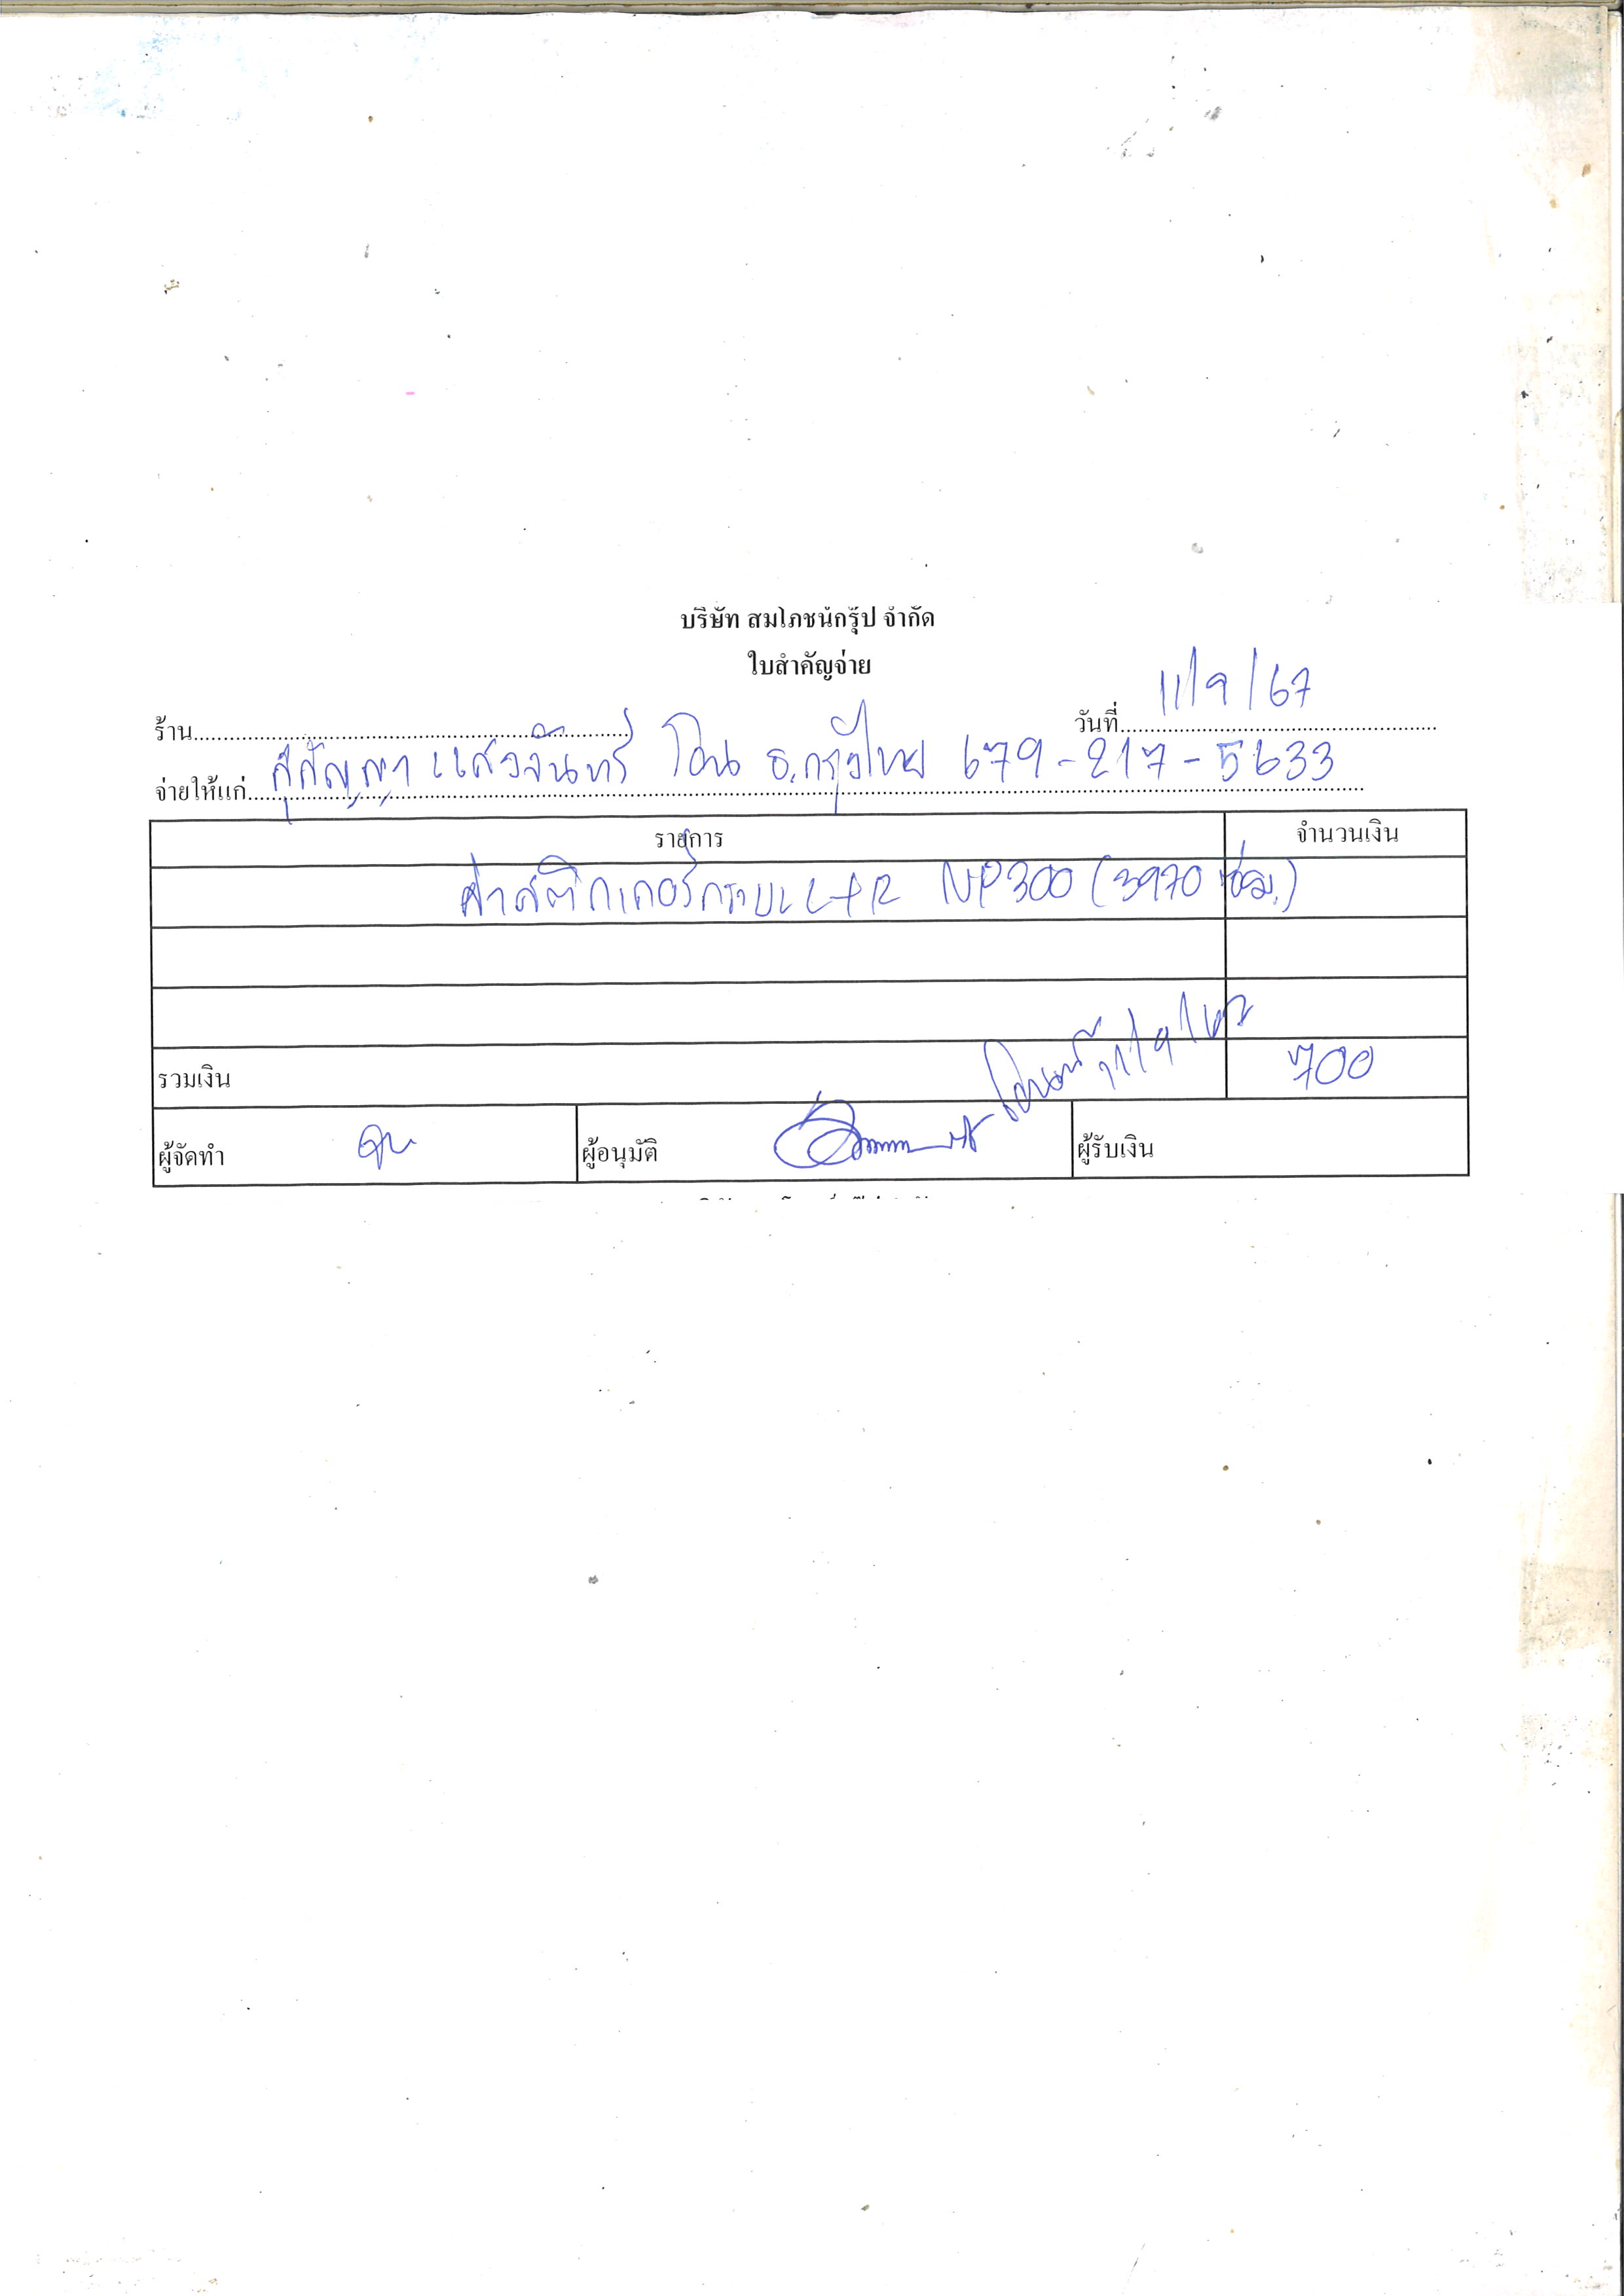 บริษัท สมโภชน์กรุ๊ป จำกัด
ใบสำคัญจ่าย
ร้าน
วันที่ 11/9/67
จ่ายให้แก่ สุกัญญา แสงจันทร์ โอน ธ.กรุงไทย 679-217-5633
รายการ จำนวนเงิน
ค่าสติกเกอร์กระบะ L+R NP300 (3970 ชม.)
รวมเงิน 700
โอนแล้ว 11/9/67
ผู้จัดทำ ผู้อนุมัติ ผู้รับเงิน